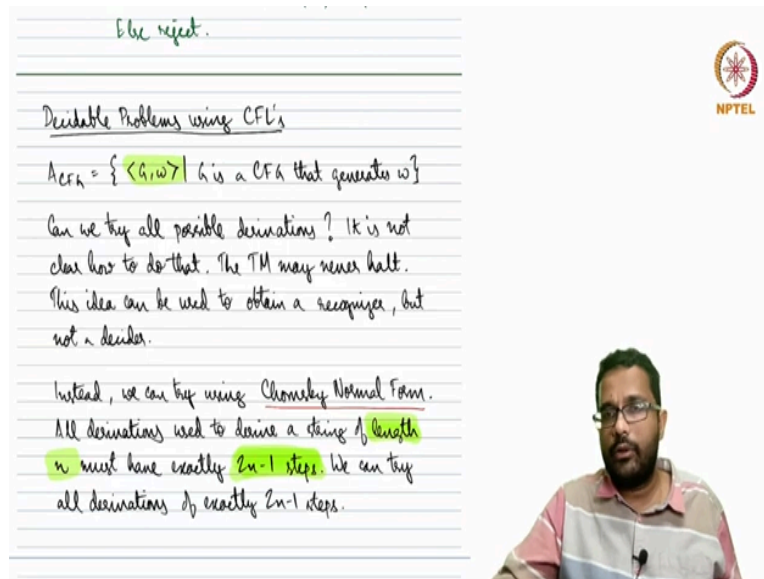 Else reject.
NPTEL
Decidable Problems using CFL's
A_CFG = { <G,w> | G is a CFG that generates w}
Can we try all possible derivations? It is not
clear how to do that. The TM may never halt.
This idea can be used to obtain a recognizer, but
not a decider.
Instead, we can try using Chomsky Normal Form.
All derivations used to derive a string of length
n must have exactly 2n-1 steps. We can try
all derivations of exactly 2n-1 steps.